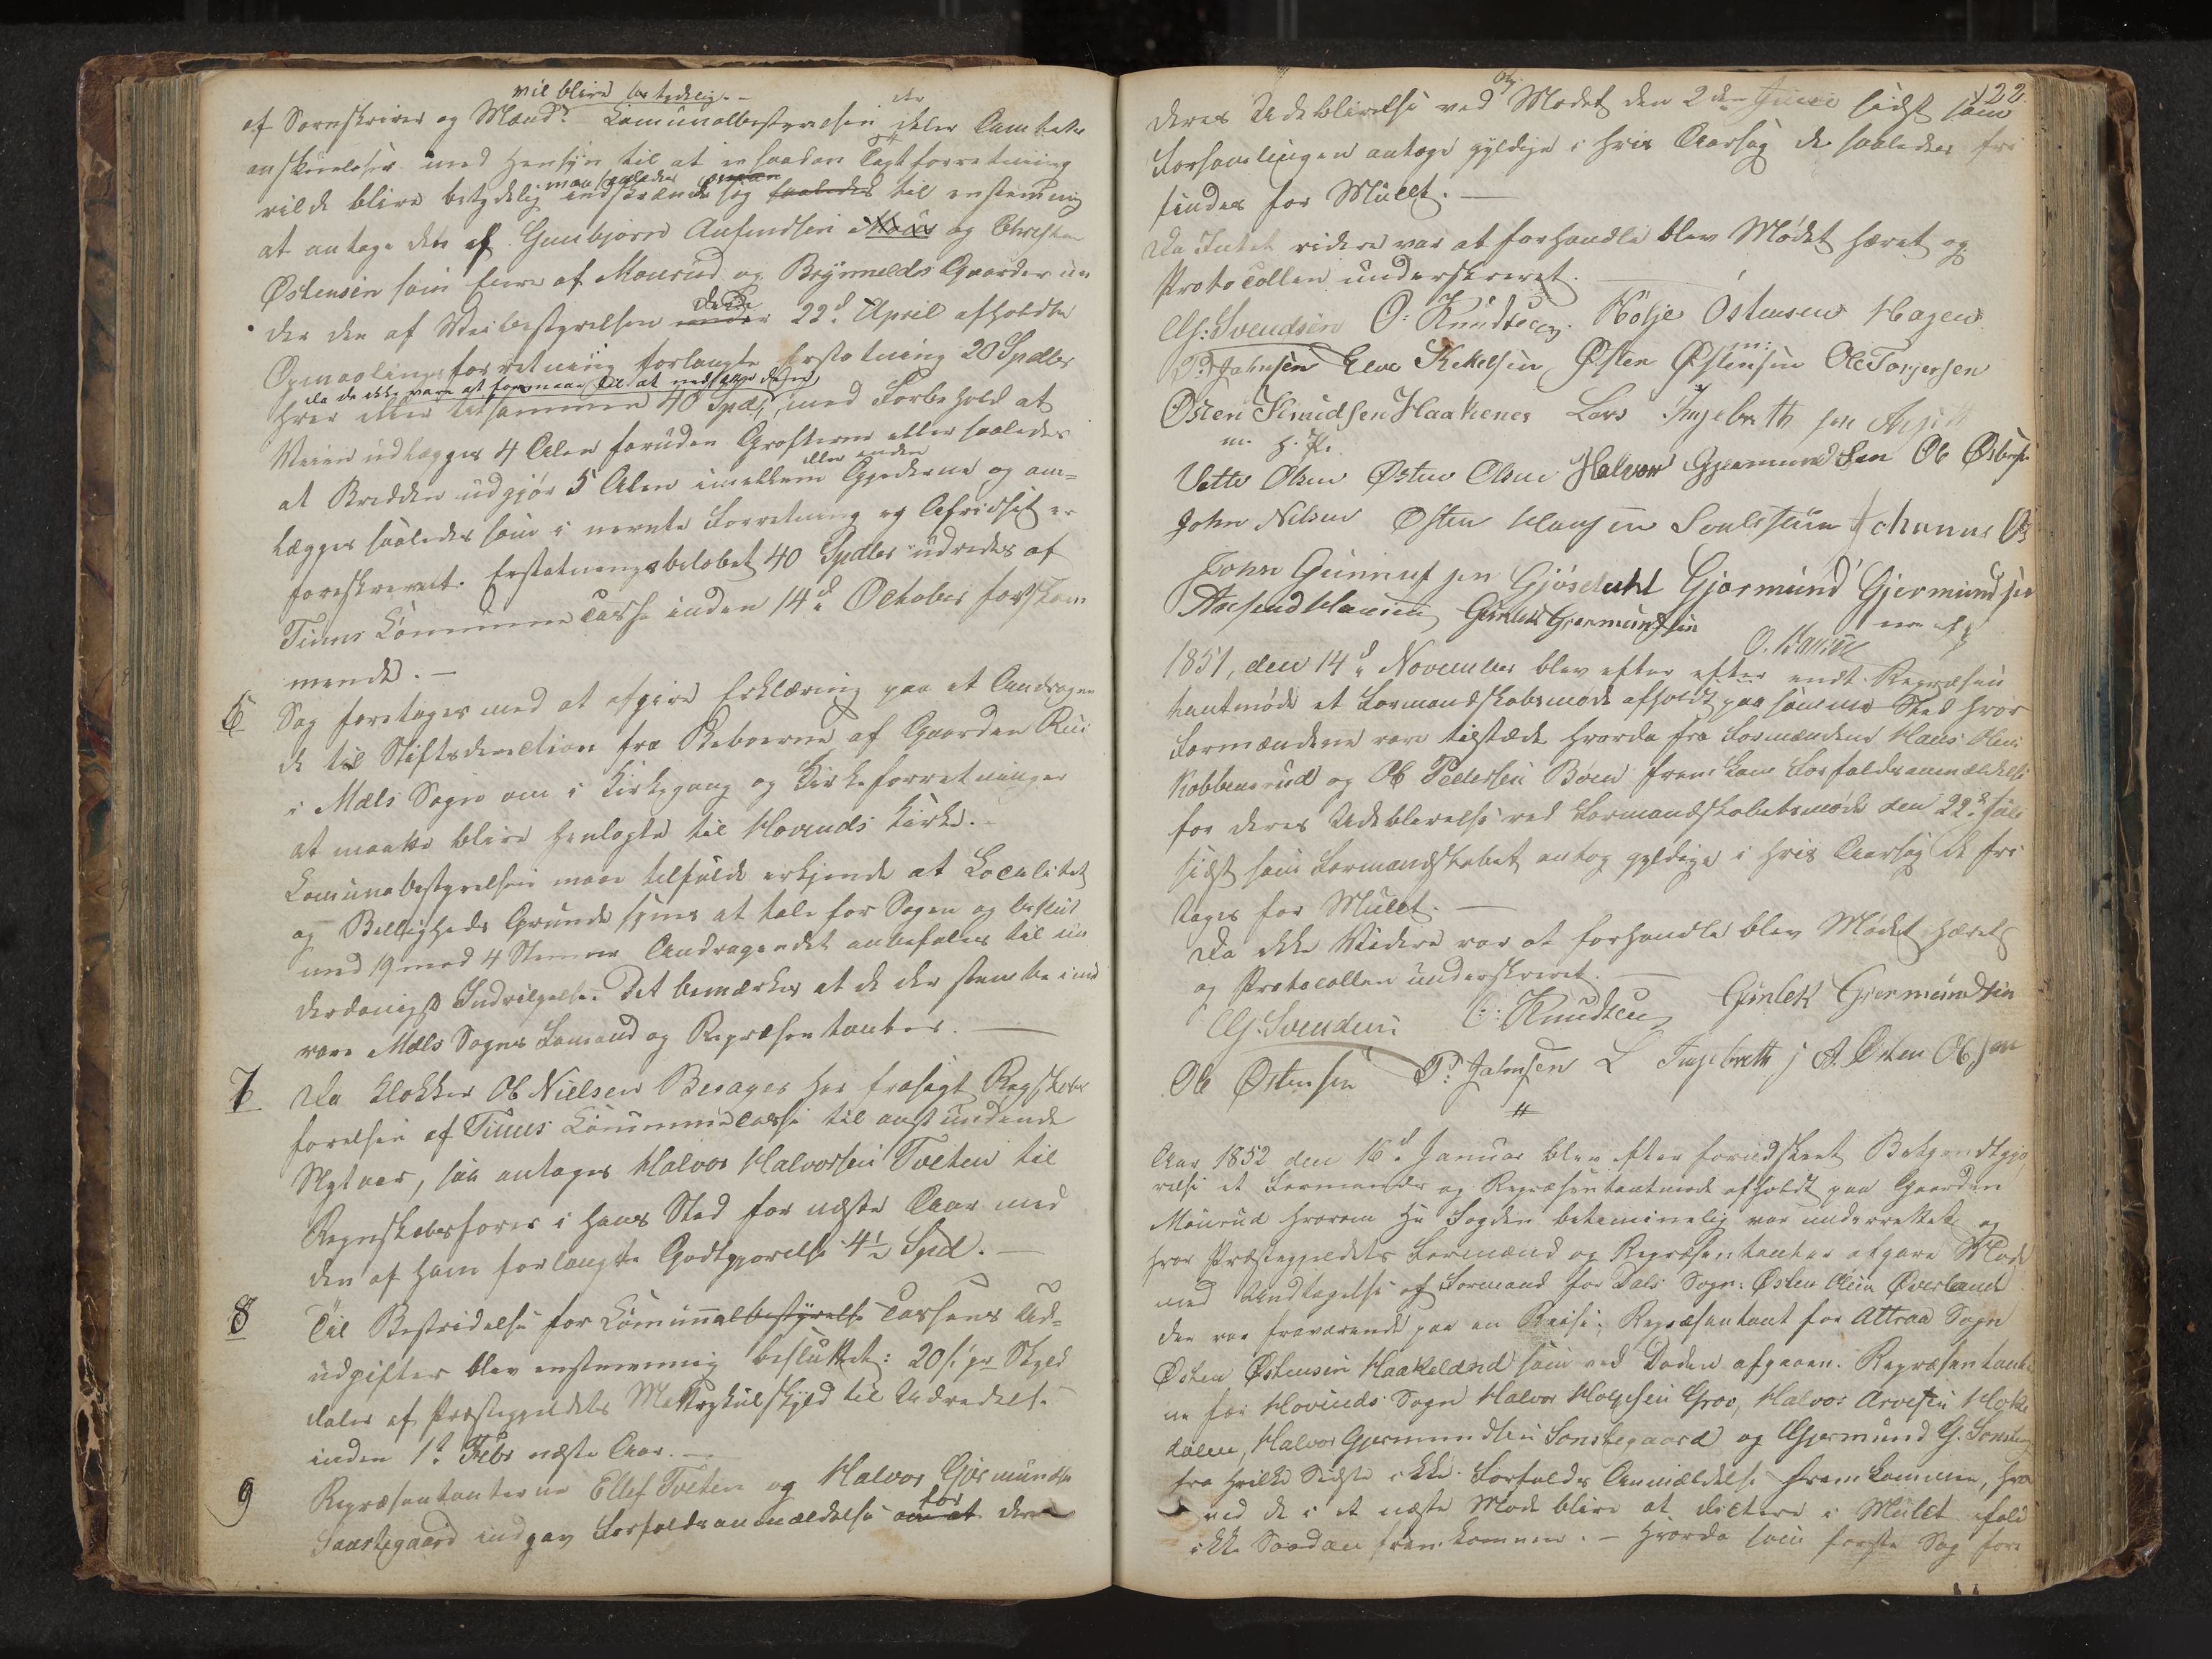 vil blive betydelig. -
af Sorenskriver og Mænd? Communalbestyrelsen deler Amtets
anskuelser med Hensyn til at en saadan Taxtforretning
vilde blive betydelig indskrænde sig saaledes til enstemmig
at antage den af Gunbjørn Aufindsen og Christen
Østensen som Eiere af Mourud og Brynnelds Gaarder un
der den af Veibestyrelsen under 22d April afholdte
Opmaalingsforretning forlangte Erstatning 20 Spdlr
da de ikke vare at formaae til at nedsætte den,
hver eller tilsammen 40 Spd, med Forbehold at
Veien udlægges 4 Alen foruden Grøfterne eller saaledes
at Bredden udgjør 5 Alen imellem Gjederne og an-
lægges saaledes som i nævnte Forretning og Afridset er
foreskrevet. Erstatningsbeløbet 40 Spdlr udredes af
Tinns Communecasse inden 14d October førstkom
mende. -
6 Sag foretoges med at afgive Erklæring paa et Andragen
de til Stiftsdirection fra Beboerne af Gaarden Rui
i Mæls Sogn om i Kirkegang og Kirkeforretninger
at maatte blive henlagte til Hovinds Kirke. -
Communebestyrelsen maae tilfulde erkjende at Localitet
og Billigheds Grunde synes at tale for Sagen og beslut
med 19 mod 4 Stemmer Andragendet anbefales til un
derdanigst Indvilgelse. Det bemærkes at de der stembe imod
vare Mæls Sogns Formand og Repræsentanter. -
7 Da Klokker Ol Nielsen Besager har frasagt Regnskabs
førelsen af Tinns Communecasse til anstundende
Nytaar, saa antages Halvor Halvorsen Tveten til
Regnskabsfører i hans Sted for næste Aar med
den af ham forlangte Godtgjørelse 4½ Spd. -
8 Til Bestridelse for Communalbestyrelse Cassens Ud-
udgifter blev enstemmig besluttet: 20 s. pr Skyld
daler af Præstegjeldets Mattrykulskyld til Udredelse
inden 1ste Febr næste Aar. -
9 Repræsentanterne Ellef Tveten og Halvor Gjermundsen
Sønstegaard indgav Forfaldsanmældelse om at for deres
122
deres Udeblivelse ved Mødet den 2den Junii sidst som
Forsamlingen antoge gyldige i hvis Aarsag de saaledes fri
findes for Mulct. -
Da Intet videre var at forhandle blev Mødet hævet og
Protocollen underskrevet.
Svendsen O. Knudsen. Kolje Østensen Hagen
P. Jahnsen Ellev Kittelsen Østen Østensen Ole Torgersen
Østen Knudsen Haakenes Lars Ingebreth sen
m. f. P.
Vetle Olsen Østen Olsen Halvor Gjermundsen Ole Østens
John Nilsen Østen Hansen
John Gunnufsen Gjøsdahl Gjermund Gjermundsen
Hansen Gunlek Gjermundsen
O. Hansen
1851, den 14d November blev efter efter endt Repræsen
tantmøde et Formandskabsmøde afholdt paa samme Sted hvor
Formændene vare tilstæde hvorda fra Formændene Hans Olsen
Kobbenrud og Ole Pedersen Bøen fremkom Forfaldsanmældelse
for deres Udeblivelse ved Formandskabetsmøde den 22d Juli
sidst som Formandskabet antog gyldige i hvis Aarsag de fri
tages for Mulct. -
Da ikke Videre var at forhandle blev Mødet hævet
og Protocollen underskrevet. -
Svendsen O: Knudsen Gunlek Gjermundsen
Ole Østensen P. Jahnsen L Ingebreth Østen Olsen
#
Aar 1852 den 16d Januar blev efter forudskeet Bekjendtgjø
relse et Formands og Repræsentantmøde afholdt paa Gaarden
Mourud hvorom Hr Fogden betimmelig var underrettet og
hvor Præstegjeldets Formænd og Repræsentanter afgave Møde
med Undtagelse af Formand for Dals Sogn: Østen Olsen Øverland
der var fraværende paa en Reise; Repræsentant for Attraa Sogn
Østen Østensen Haakeland som ved Døden afgaaen. Repræsentante
ne for Hovinds Sogn Halvor Halvorsen Grov, Halvor Arvesen
dalen, Halvor Gjermundsen Sønstegaard og Gjermund G. Sønste
fra hvilke Sidste ikke Forfalds Anmældelse fremkommen, hvor
ved de i et næste Møde blive at dictere i Mulct ifald
ikke Saadan fremkommer. - Hvorda som første Sag fore